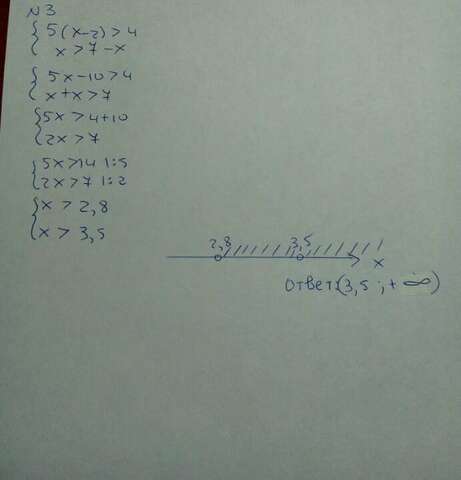 N3
{ 5(x-2)>4
x>7-x
{ 5x-10>4
x+x>7
{ 5x>4+10
2x>7
{ 5x>14 |:5
2x>7 |:2
{ x > 2,8
x > 3,5
2,8 3,5
x
Ответ:(3,5;+∞)